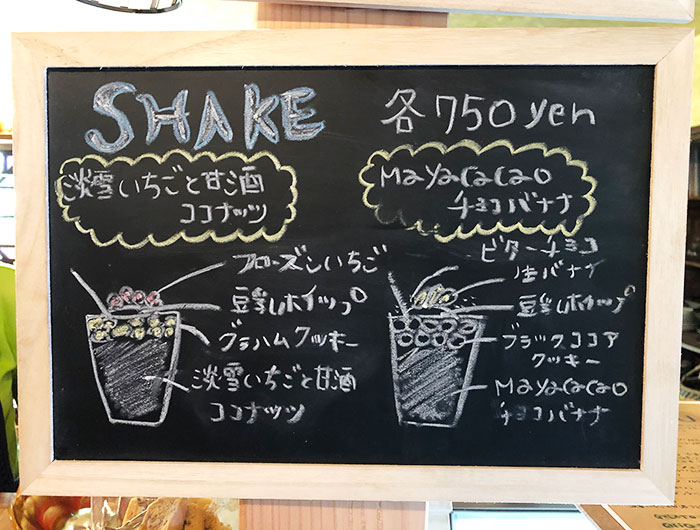 SHAKE 各750yen
淡雪いちごと甘酒
ココナッツ
Mayacacao
チョコバナナ
フローズンいちご
豆乳ホイップ
グラハムクッキー
淡雪いちごと甘酒
ココナッツ
ビターチョコ
生バナナ
豆乳ホイップ
ブラックココア
クッキー
Mayacacao
チョコバナナ